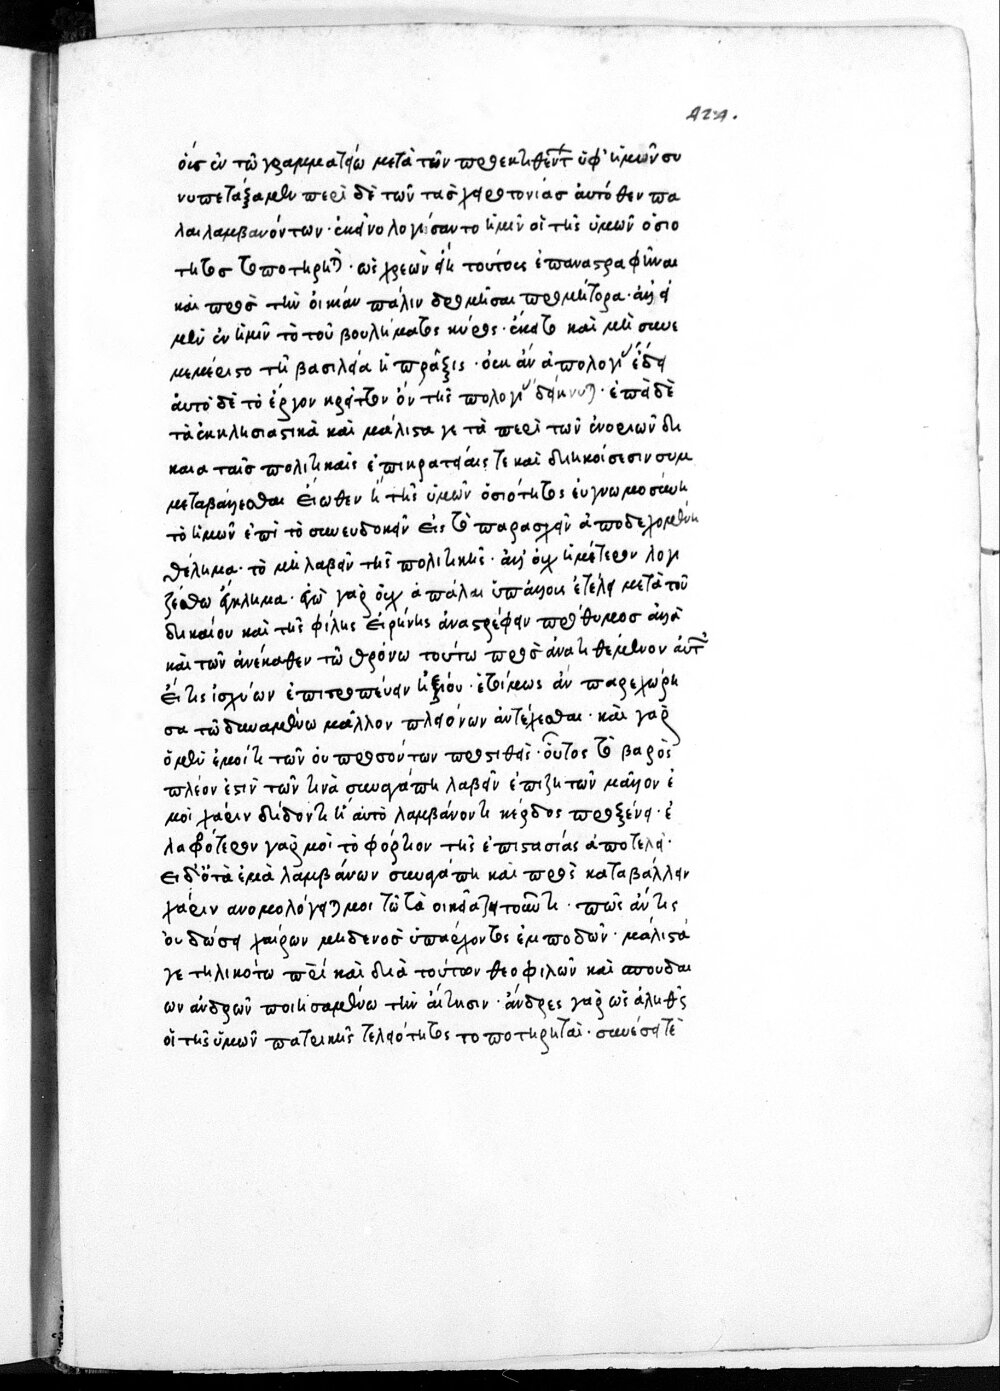 424.
οἷς ἐν τῶ γραμματείω μετὰ τῶν προεκτιθέντ ὑφ' ἡμῶν συ
νυπετάξαμεν περὶ δὲ τῶν τὰς χειροτονίας αὐτόθεν πα
λαι λαμβανόντων· ἐκεινολογήσαντο ἡμῖν οἱ τῆς ὑμῶν ὁσιό
τητος τοποτηρητ· ὡς χρεὼν εἴη τούτους ἐπαναστραφῆναι
καὶ πρὸς τὴν οἰκείαν πάλιν δραμῆσαι προμήτορα· ἀλλ' εἰ
μὲν ἐν ἡμῖν τὸ τοῦ βουλήματος κύρος· ἔκειτο καὶ μὴ συνε
μεμέριστο τῆ βασιλεία ἡ πρᾶξις· οὐκ ἂν ἀπολογί ἔδει
αὐτὸ δὲ τὸ ἔργον κρεῖττον ὂν τῆς πολογί δείκνυ· ἐπεὶ δὲ
τὰ ἐκκλησιαστικὰ καὶ μάλιστα γε τὰ περὶ τῶν ἐνοριῶν δί
καια ταῖς πολιτικαῖς ἐπικρατείαις τε καὶ διοικήσεσιν συμ
μεταβάλλεσθαι εἴωθεν ἡ τῆς ὑμῶν ὁσιότητος εὐγνωμοσύνη
τὸ ἡμῶν ἐπὶ τὸ συνευδοκεῖν εἰς τὸ παρασχεῖν ἀποδεχομένη
θέλημα· τὸ μὴ λαβεῖν τῆς πολιτικῆς· ἀλλ' οὐχ ἡμέτερον λογι
ζέσθω ἔγκλημα· ἐγὼ γὰρ οὐχ ἃ πάλαι ὑπ' ἄλλους ἐτέλει μετὰ τοῦ
δικαίου καὶ τῆς φίλης εἰρήνης ἀναστρέφειν πρόθυμος ἀλλὰ
καὶ τῶν ἀνέκαθεν τῶ θρόνω τούτω προσανατιθέμενον αὐτ
εἴ τις ἰσχύων ἐπιτροπεύειν ἠξίου· ἑτοίμως ἂν παρεχώρη
σα τῶ δυναμένω μᾶλλον πλειόνων ἀντέχεσθαι· καὶ γὰρ
ὁ μὲν ἐμοί τι τῶν οὐ προσόντων προστιθεὶς· οὗτος τὸ βαρὸς
πλέον ἐστὶν τῶν τινὰ συναγάπη λαβεῖν ἐπιζητῶν μᾶλλον ἐ
μοὶ χάριν διδόντι ἢ αὐτὸ λαμβάνοντι κέρδος προξένει· ἐ
λαφρότερον γάρ μοι τὸ φόρτιον τῆς ἐπιστασίας ἀποτελεῖ·
εἰ δ' ὁ τὰ ἐμὰ λαμβάνων συναγάπη καὶ πρὸς καταβάλλειν
χάριν ἀνομολόγει μοι
οὐ δώσει χαίρων μηδενὸς ὑπάρχοντος ἐμποδῶν· μάλιστά
γε τηλικούτω περὶ καὶ διὰ τούτων θεοφιλῶν καὶ σπουδαί
ων ἀνδρῶν ποιησαμένω τὴν αἴτησιν· ἄνδρες γὰρ ὡς ἀληθῶς
οἱ τῆς ὑμῶν πατρικῆς τελειότητος τοποτηρηταὶ· συνέσει τὲ